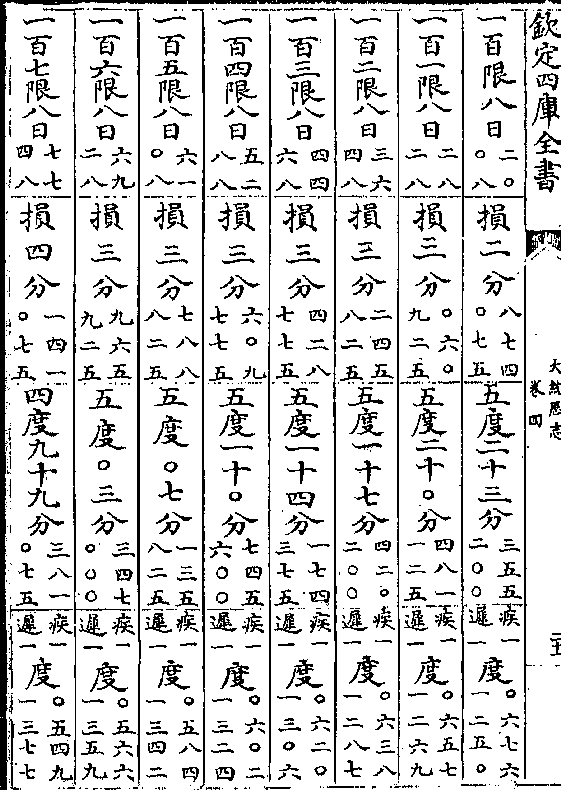 欽定四庫全書
大統厯志
卷四
一百限八日二〇〇八損二分八七四〇七五五度二十三分三五五二〇〇疾一遲一度〇六七六一二五〇
一百一限八日二八二八損二分〇六〇九二五五度二十〇分四八一一二五疾一遲一度〇六五七一二六九
一百二限八日三六四八損三分二四五八二五五度一十七分四二〇二〇〇疾一遲一度〇六三八一二八七
一百三限八日四四六八損三分四二八七七五五度一十四分一七四三七五疾一遲一度〇六二〇一三〇六
一百四限八日五二八八損三分六〇九七七五五度一十〇分七四五六〇〇疾一遲一度〇六〇二一三二四
一百五限八日六一〇八損三分七八八八二五五度〇七分一三五八二五疾一遲一度〇五八四一三四二
一百六限八日六九二八損三分九六五九二五五度〇三分三四七〇〇〇疾一遲一度〇五六六一三五九
一百七限八日七七四八損四分一四一〇七五四度九十九分三八一〇七五疾一遲一度〇五四九一三七七